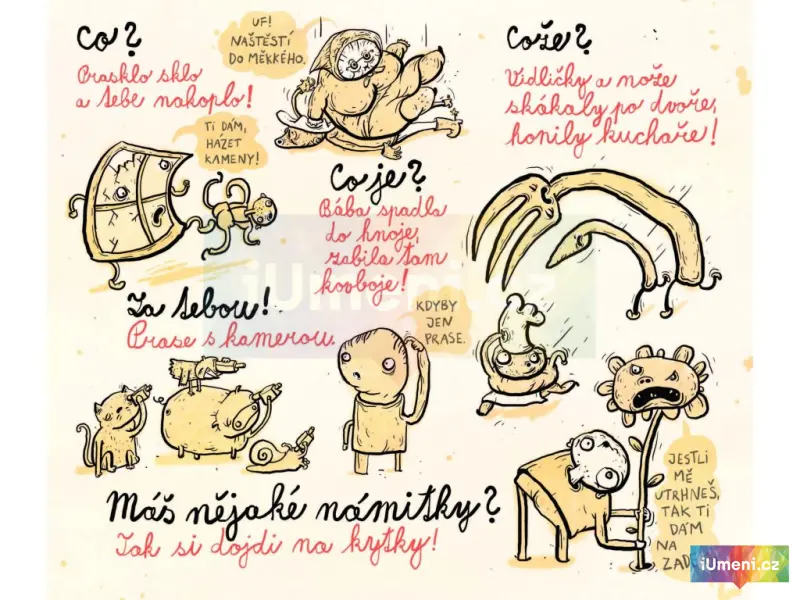 Co?
Prasklo sklo
a tebe nakoplo!
UF!
NAŠTĚSTÍ
DO MĚKKÉHO.
Cože?
Vidličky a nože
skákaly po dvoře,
honily kuchaře!
TI DÁM,
HÁZET
KAMENY!
Co je?
Bába spadla
do hnoje,
zabila tam
kovboje!
iUmeni.cz
Za tebou!
Prase s kamerou.
KDYBY
JEN
PRASE.
JESTLI
MĚ
UTRHNEŠ,
TAK TI
DÁM
NA
ZAD
Máš nějaké námitky?
Tak si dojdi na kytky!
iUmeni.cz